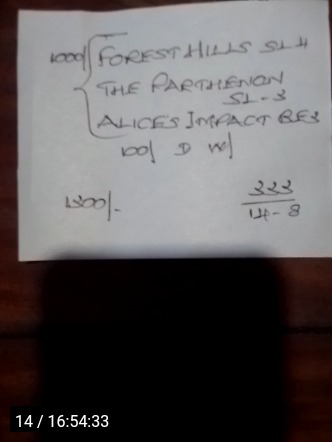 1000/ FOREST HILLS SL 4
THE PARTHENON
SL-3
ALICES IMPACT BE3
100/ D W/
1300/-
333
14-8
14 / 16:54:33